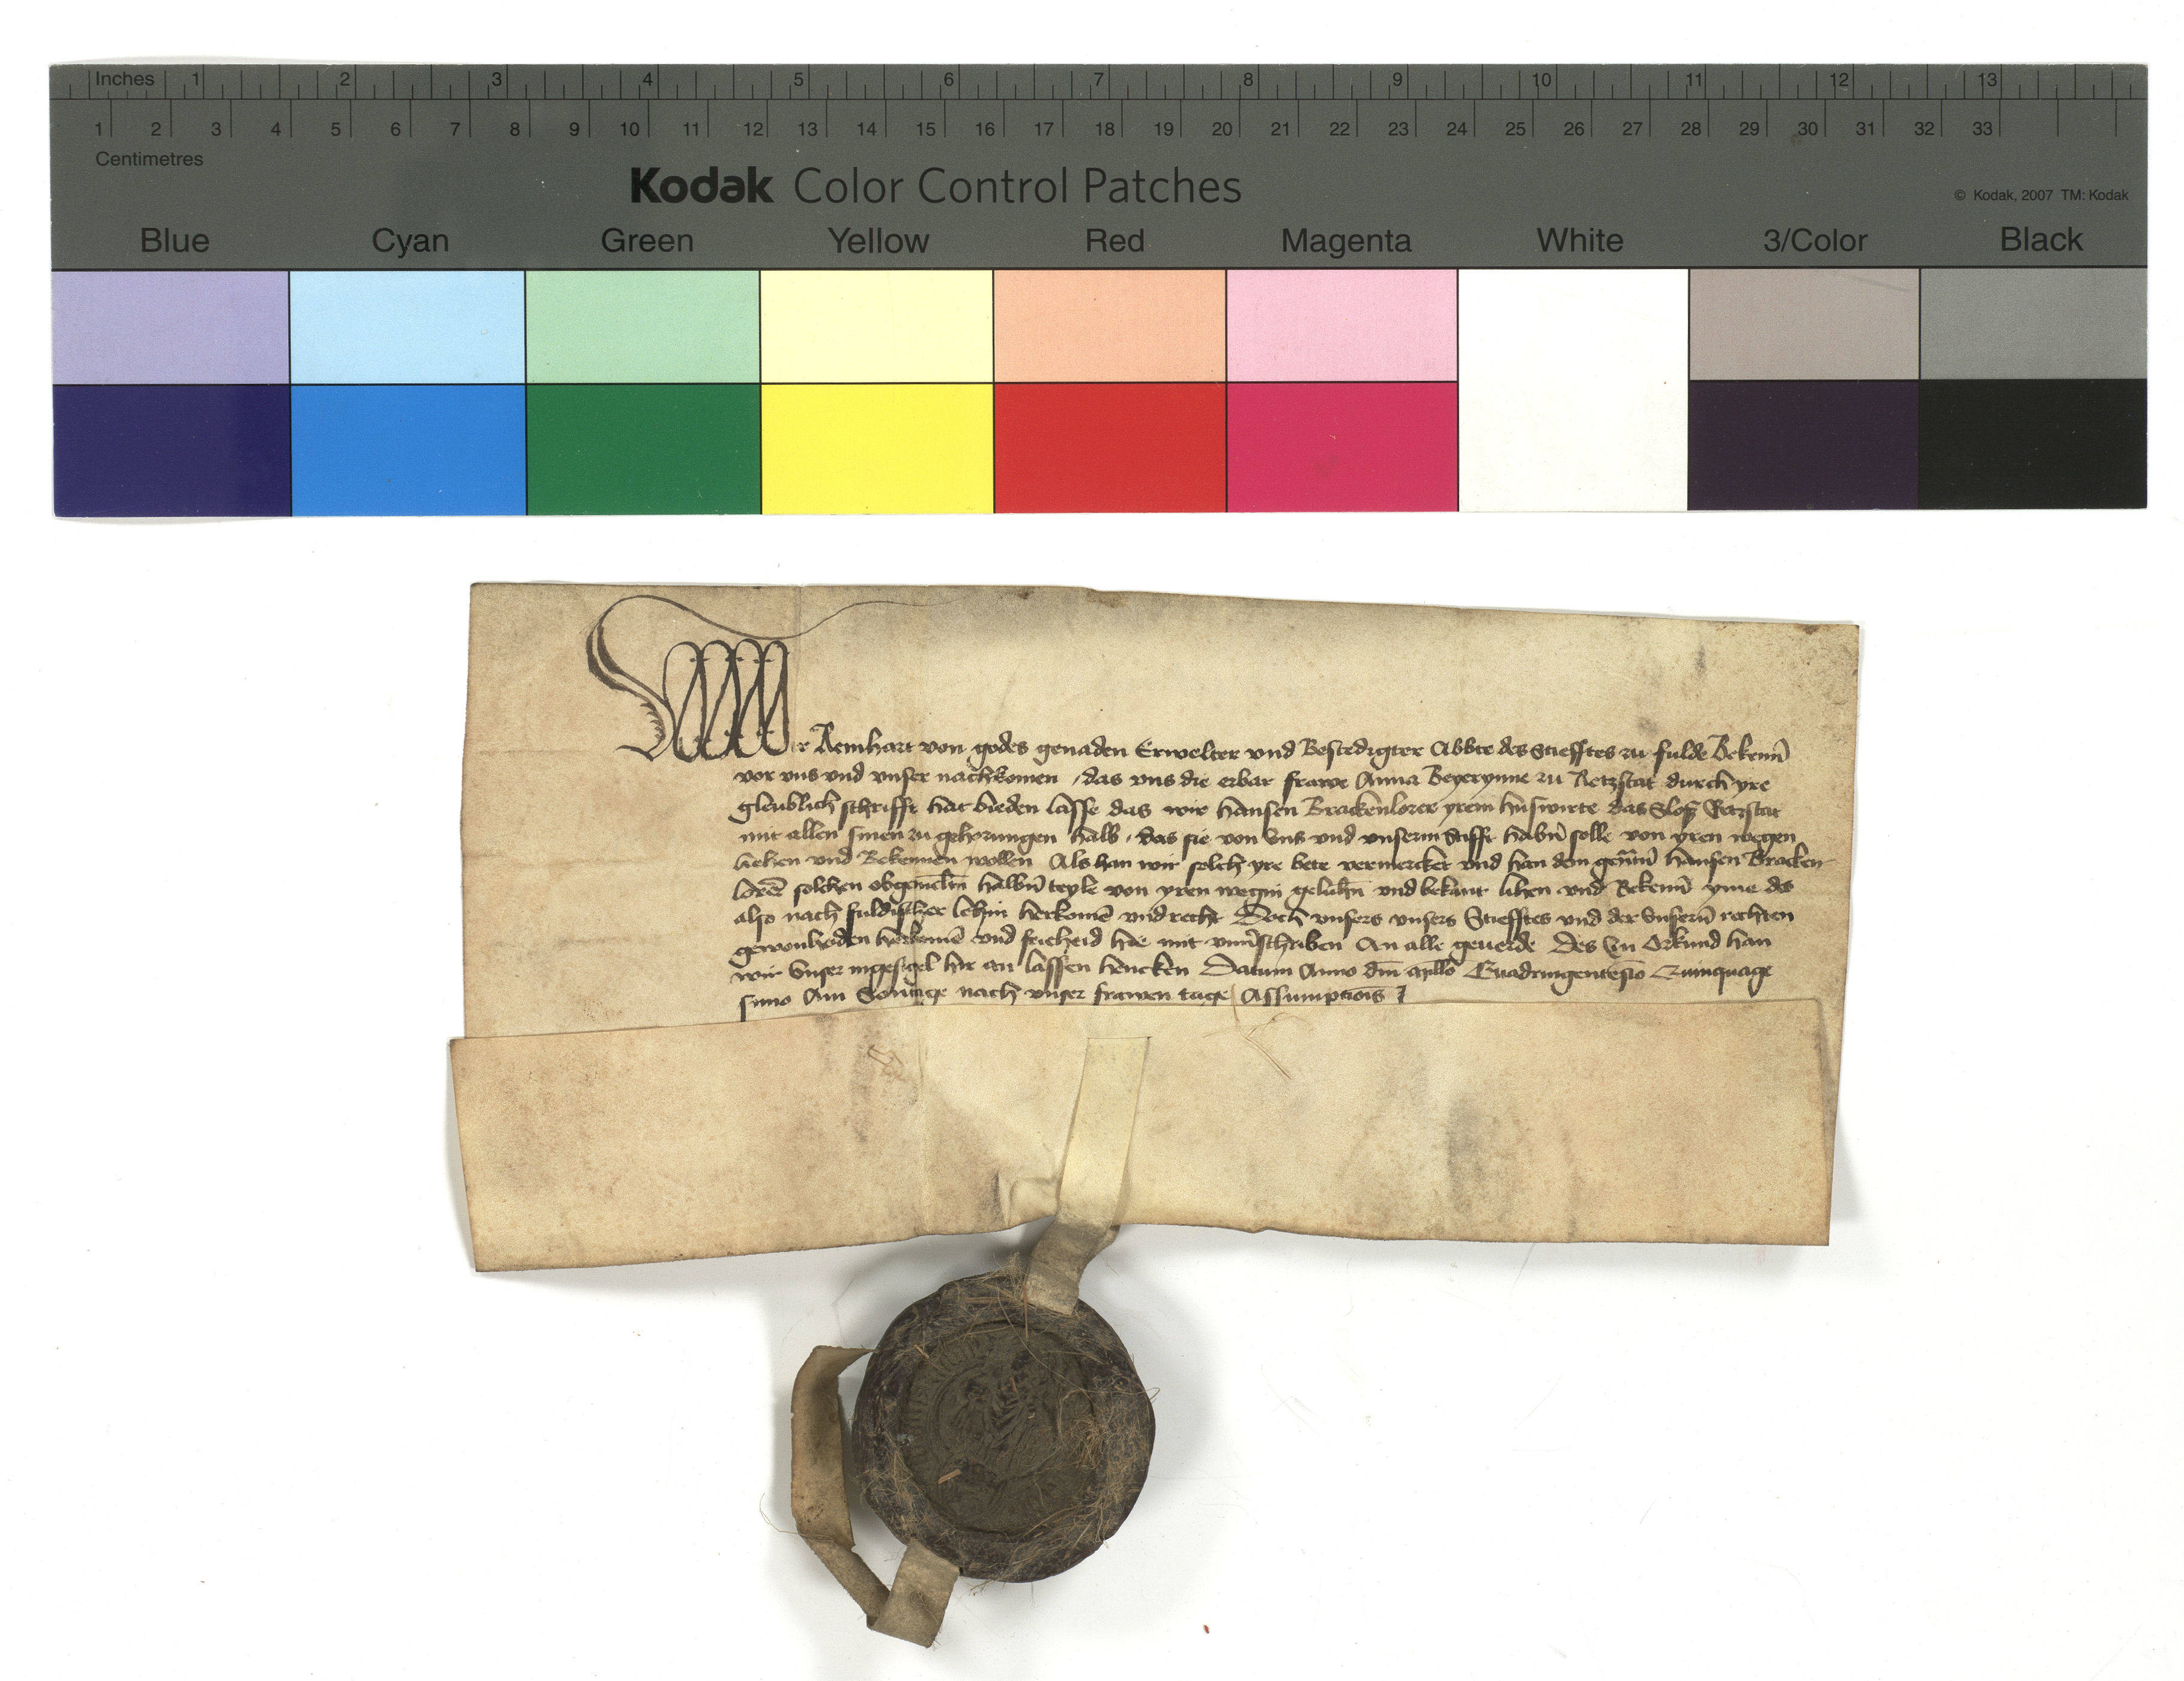 Inches 1 2 3 4 5 6 7 8 9 10 11 12 13
1 2 3 4 5 6 7 8 9 10 11 12 13 14 15 16 17 18 19 20 21 22 23 24 25 26 27 28 29 30 31 32 33
Centimetres
Kodak Color Control Patches
© Kodak, 2007 TM: Kodak
Blue Cyan Green Yellow Red Magenta White 3/Color Black
Wir Reinhart von godes genaden Erwelter vnd Bestedigter Abbte des Stiefftes zu fulde Bekenn̄
vor vns vnd vnser nachkomen , das vns die erbar frawe Anna Beyerynne zu Retzstat durch yre
gleublich schrifft hat bieden lasse das wir hansen Brackenlorer yrem huswirte das Sloß Retzstat
mit allen sinen zu gehorungen halb , das sie von vns vnd vnserm Stifft habn̄ solle von yren wegen
liehen vnd Bekennen wollen Als han wir solch yre bete vermercket vnd han dem gen̄tn̄ hansen Bracken
lorer̄ solchen obgemelt̄n halbn̄ teyle von yren wegin geluhn̄ vnd bekant lihen vnd Bekenn̄ yme des
also nach fuldischer lehin herkomē vnd recht Doch vnsers vnsers Stiefftes vnd der vnsern̄ rechten
gewonheiden herkomē vnd friheid hie mit vnu̕schriben An alle geuerde Des zu Orkund han
wir vnser ingesigel hir an lassen hencken Datum Anno dm̄ mill̄o Quadringentesīo Quinquage
simo Am Sontage nach vnser frawen tage Assumpcōis